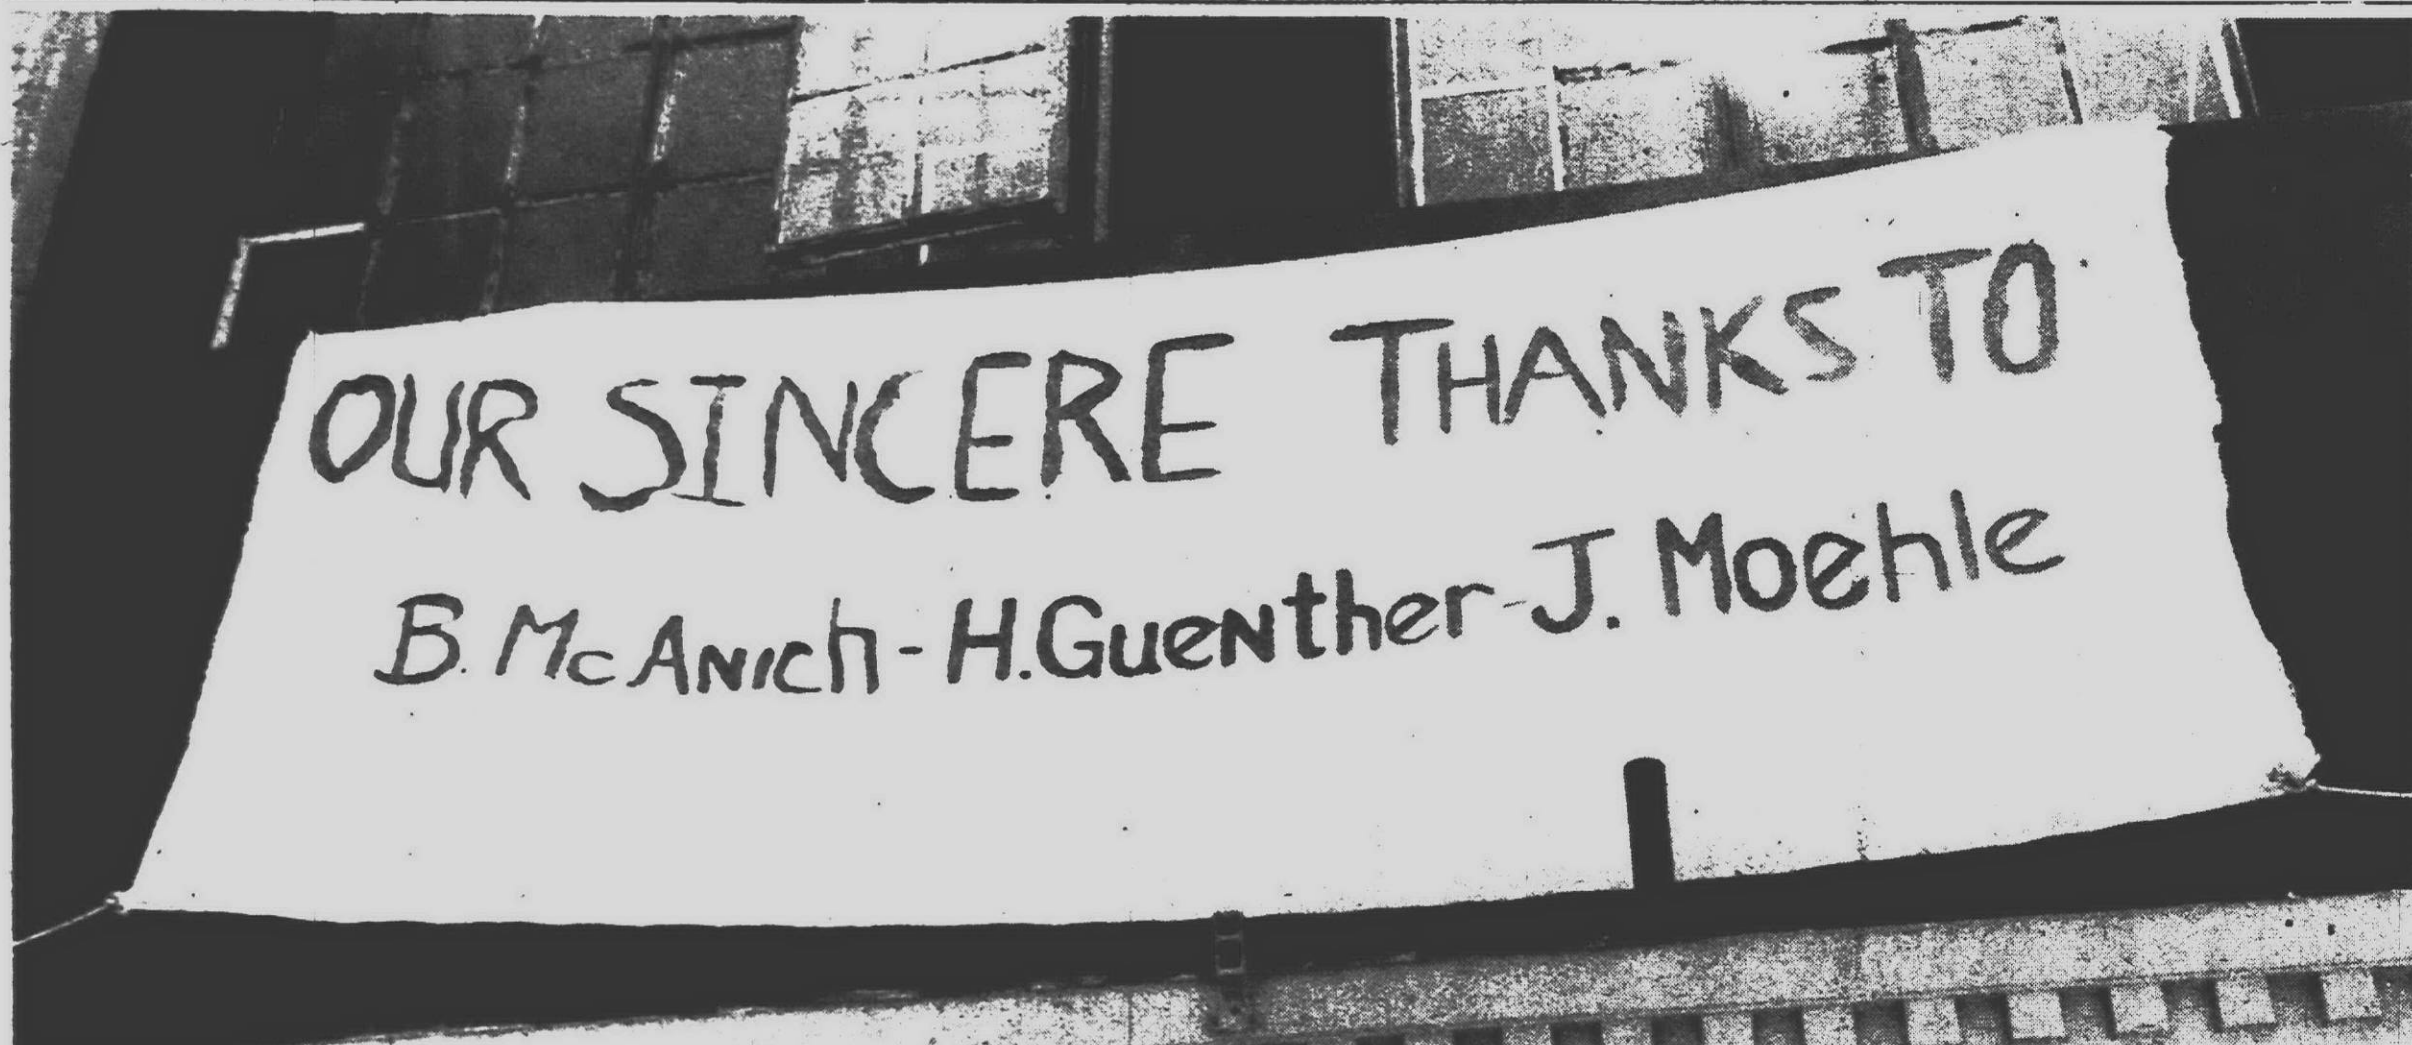 OUR SINCERE THANKS TO
B. McANich - H. GueNther - J. Moehle